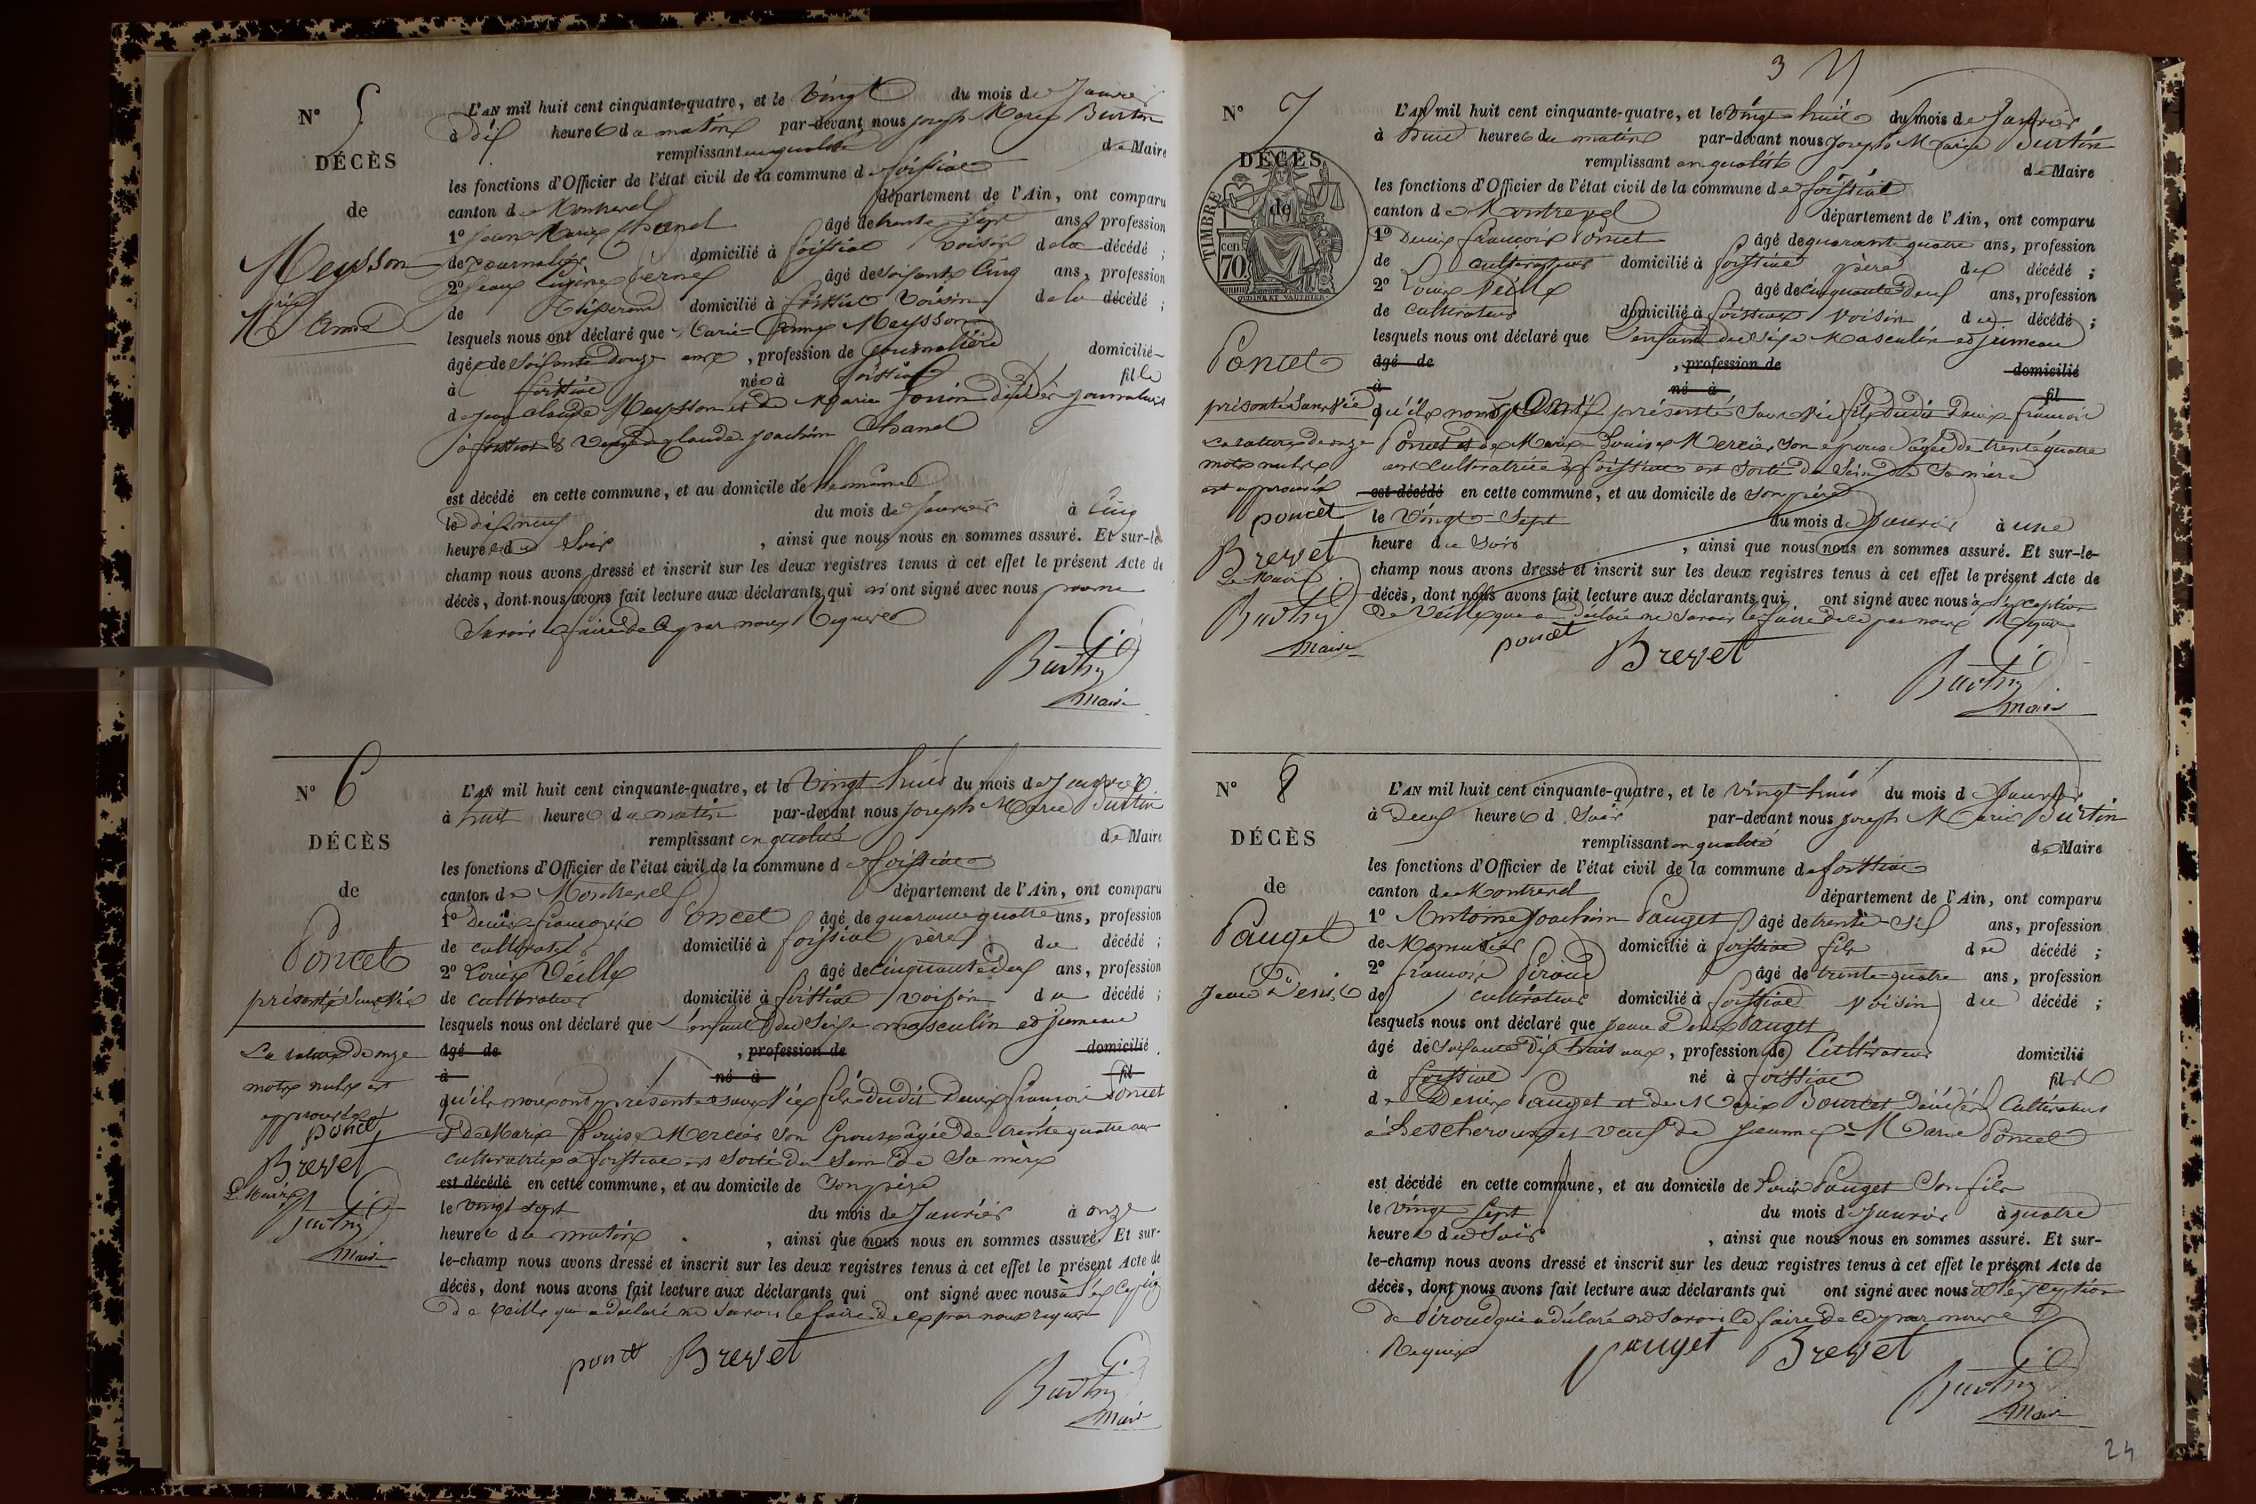 N° 5
DÉCÈS
de
Meysson
Marie
Anne
L'AN mil huit cent cinquante-quatre, et le vingt du mois de Janvier
à dix heures du matin par-devant nous Joseph Marie Burtin
remplissant en qualité de Maire
les fonctions d'Officier de l'état civil de la commune de foissiat
canton de Montrevel département de l'Ain, ont comparu
1° Jean Marie Chanel âgé de trente Sept ans, profession
de journalier domicilié à foissiat voisin de la décédé ;
2° Jean Eugène Vernes âgé de Soixante Cinq ans, profession
de domicilié à foissiat voisin de la décédé ;
lesquels nous ont déclaré que Marie-Anne Meysson
âgée de Soixante Douze ans, profession de journalière domicilié
à foissiat née à foissiat fille
de Jean Claude Meysson et de Marie décédés journaliers
à foissiat & Veuve de Claude Joachim Chanel
est décédé en cette commune, et au domicile de
le dix neuf du mois de Janvier à Cinq
heures du Soir, ainsi que nous nous en sommes assuré. Et sur-le-
champ nous avons dressé et inscrit sur les deux registres tenus à cet effet le présent Acte de
décès, dont nous avons fait lecture aux déclarants qui n'ont signé avec nous pour ne
Savoir le faire de ce par nous Requis
Burtin
maire
N° 6
DÉCÈS
de
Poncet
présenté Sans Vie
La rature de onze
mots nuls est
approuvée
poncet
Brevet
Le Maire
Burtin
Maire
L'AN mil huit cent cinquante-quatre, et le Vingt huit du mois de Janvier
à huit heures du matin par-devant nous Joseph Marie Burtin
remplissant en qualité de Maire
les fonctions d'Officier de l'état civil de la commune de foissiat
canton de Montrevel département de l'Ain, ont comparu
1° Denis François Poncet âgé de quarante quatre ans, profession
de cultivateur domicilié à foissiat père du décédé ;
2° Louis Veille âgé de cinquante deux ans, profession
de cultivateur domicilié à foissiat voisin du décédé ;
lesquels nous ont déclaré que l'enfant du Sexe masculin et jumeau
âgé de , profession de domicilié
à né à fil
qu'ils nous ont présenté sans Vie fils dudit Denis François Poncet
& de Marie Louise Mercier Son Epouse âgée de trente quatre ans
cultivatrice à foissiat est Sorti du Sein de Sa mère
est décédé en cette commune, et au domicile de Son père
le vingt sept du mois de Janvier à onze
heures du matin, ainsi que nous nous en sommes assuré. Et sur-
le-champ nous avons dressé et inscrit sur les deux registres tenus à cet effet le présent Acte de
décès, dont nous avons fait lecture aux déclarants qui ont signé avec nous à l'exception
de Veille qui a déclaré ne Savoir le faire de ce par nous requis
poncet Brevet
Burtin
Maire
3
N° 7
DÉCÈS
de
TIMBRE
70 cen
Poncet
présenté Sans Vie
La rature de onze
mots nuls
est approuvée
poncet
Brevet
Le Maire
Burtin
Maire
L'AN mil huit cent cinquante-quatre, et le Vingt huit du mois de Janvier
à huit heures du matin par-devant nous Joseph Marie Burtin
remplissant en qualité de Maire
les fonctions d'Officier de l'état civil de la commune de foissiat
canton de Montrevel département de l'Ain, ont comparu
1° Denis François Poncet âgé de quarante quatre ans, profession
de cultivateur domicilié à foissiat père du décédé ;
2° Louis Veille âgé de cinquante deux ans, profession
de cultivateur domicilié à foissiat voisin du décédé ;
lesquels nous ont déclaré que l'enfant du Sexe Masculin et jumeau
âgé de , profession de domicilié
à né à fil
qu'ils nous ont présenté Sans Vie fils dudit Denis François
Poncet et de Marie Louise Mercier Son épouse âgée de trente quatre
ans cultivatrice à foissiat est sorti du Sein de Sa mère
est décédé en cette commune, et au domicile de Son père
le Vingt-Sept du mois de Janvier à une
heure du Soir, ainsi que nous nous en sommes assuré. Et sur-le-
champ nous avons dressé et inscrit sur les deux registres tenus à cet effet le présent Acte de
décès, dont nous avons fait lecture aux déclarants qui ont signé avec nous à l'exception
de Veille qui a déclaré ne Savoir le faire de ce par nous Requis
poncet Brevet
Burtin
Maire
N° 8
DÉCÈS
de
Pauget
Jean Denis
L'AN mil huit cent cinquante-quatre, et le vingt-huit du mois de Janvier
à Deux heures du Soir par-devant nous Joseph Marie Burtin
remplissant en qualité de Maire
les fonctions d'Officier de l'état civil de la commune de foissiat
canton de Montrevel département de l'Ain, ont comparu
1° Antoine Joachim Pauget âgé de trente-Six ans, profession
de Menuisier domicilié à foissiat fils du décédé ;
2° François Piroud âgé de trente-quatre ans, profession
de cultivateur domicilié à foissiat voisin du décédé ;
lesquels nous ont déclaré que Jean Denis Pauget
âgé de Soixante Dix huit ans, profession de Cultivateur domicilié
à foissiat né à foissiat fils
de Denis Pauget et de Marie Bourcet Décédés Cultivateurs
à Lescheroux et veuf de Jeanne-Marie Poncet
est décédé en cette commune, et au domicile de Louis Pauget Son fils
le vingt Sept du mois de Janvier à quatre
heures du Soir, ainsi que nous nous en sommes assuré. Et sur-
le-champ nous avons dressé et inscrit sur les deux registres tenus à cet effet le présent Acte de
décès, dont nous avons fait lecture aux déclarants qui ont signé avec nous à l'exception
de Piroud qui a déclaré ne Savoir le faire de ce par nous
Requis
pauget Brevet
Burtin
Maire
24